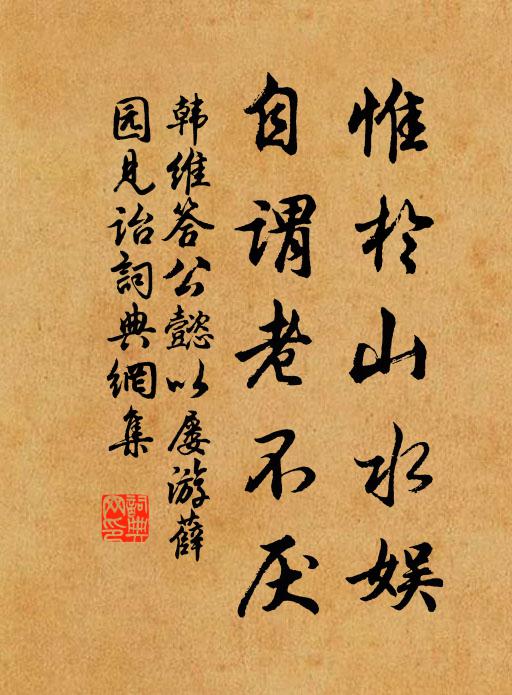 惟於山水娱
自谓老不厌
韩维答公懿以屡游薛
园见诒詞典網集
詞典网印